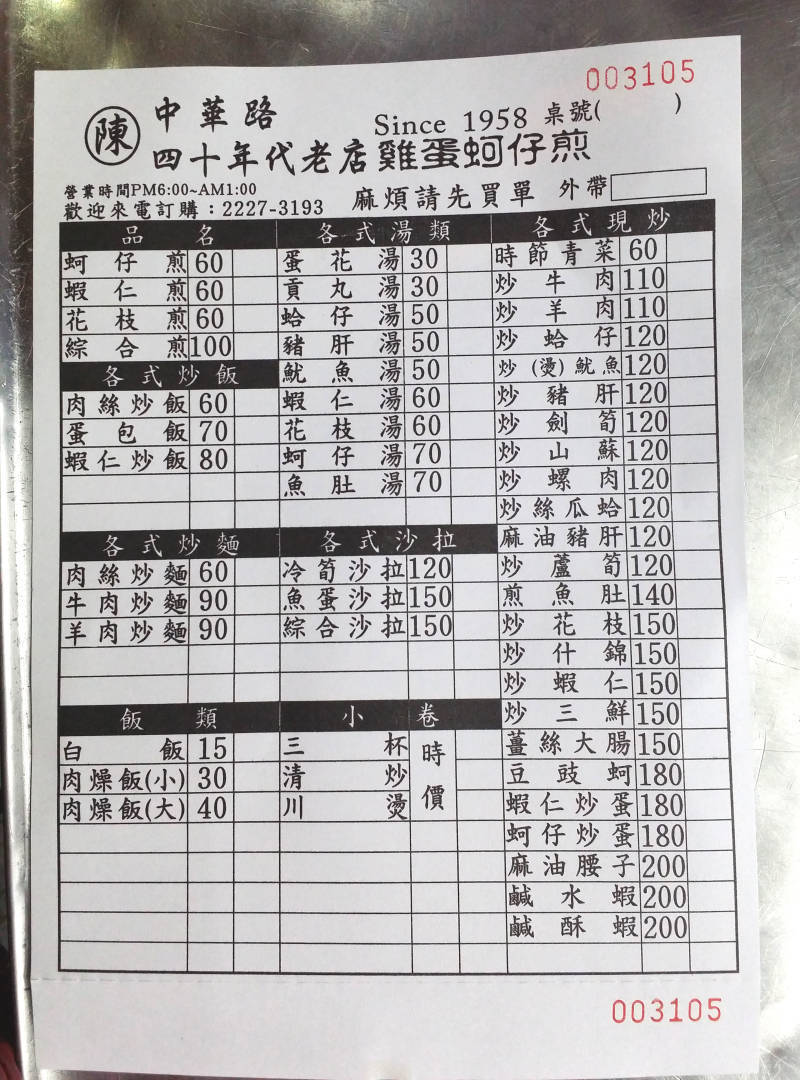 003105
陳
中華路
Since 1958 桌號( )
四十年代老店雞蛋蚵仔煎
營業時間PM6:00~AM1:00
歡迎來電訂購：2227-3193
麻煩請先買單 外帶
品名
蚵仔煎 60
蝦仁煎 60
花枝煎 60
綜合煎 100
各式炒飯
肉絲炒飯 60
蛋包飯 70
蝦仁炒飯 80
各式炒麵
肉絲炒麵 60
牛肉炒麵 90
羊肉炒麵 90
飯類
白飯 15
肉燥飯(小) 30
肉燥飯(大) 40
各式湯類
蛋花湯 30
貢丸湯 30
蛤仔湯 50
豬肝湯 50
魷魚湯 50
蝦仁湯 60
花枝湯 60
蚵仔湯 70
魚肚湯 70
各式沙拉
冷筍沙拉 120
魚蛋沙拉 150
綜合沙拉 150
小卷
三杯
清炒
川燙
時價
各式現炒
時節青菜 60
炒牛肉 110
炒羊肉 110
炒蛤仔 120
炒(燙)魷魚 120
炒豬肝 120
炒劍筍 120
炒山蘇 120
炒螺肉 120
炒絲瓜蛤 120
麻油豬肝 120
炒蘆筍 120
煎魚肚 140
炒花枝 150
炒什錦 150
炒蝦仁 150
炒三鮮 150
薑絲大腸 150
豆豉蚵 180
蝦仁炒蛋 180
蚵仔炒蛋 180
麻油腰子 200
鹹水蝦 200
鹹酥蝦 200
003105